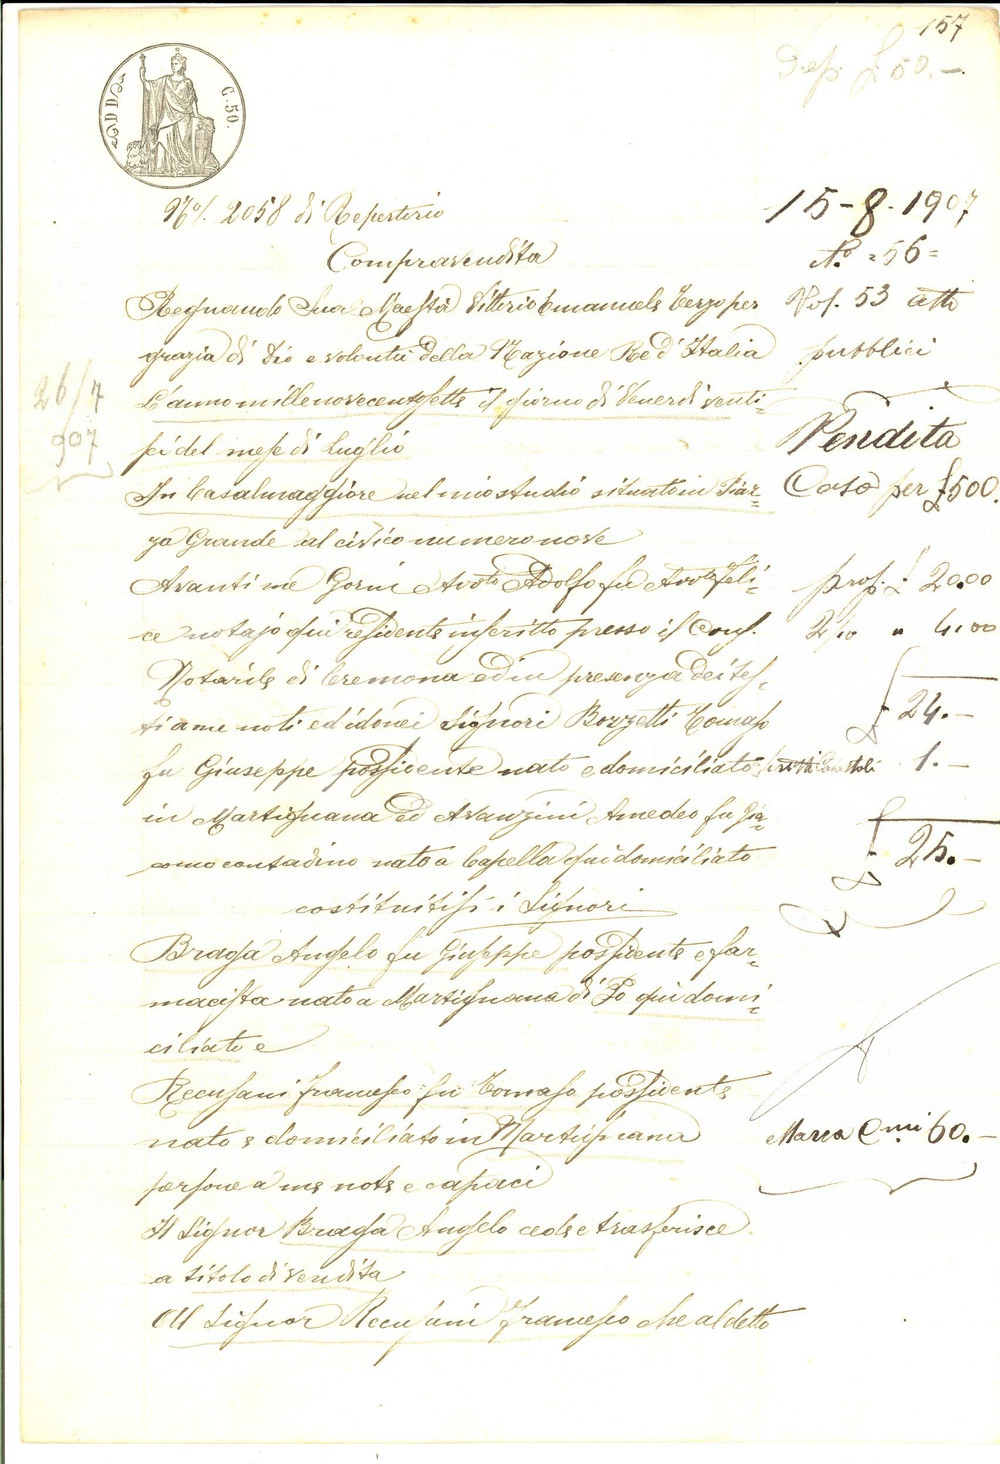 157
Dep. £ 50.-
C. 50.
N.º 2058 di Repertorio
Compravendita
Regnando Sua Maestà Vittorio Emanuele Terzo per
grazia di Dio e volontà della Nazione Re d'Italia
L'anno millenovecentosette il giorno di Venerdì venti=
sei del mese di Luglio
In Casalmaggiore nel mio studio situato in Piaz=
za Grande al civico numero nove
Avanti me Gorni Avv.to Adolfo fu Avv.to Feli=
ce notajo qui residente inscritto presso il Cons.
Notarile di Cremona ed in presenza dei tes=
ti a me noti ed idonei Signori Bozzetti Tomaso
fu Giuseppe possidente nato e domiciliato
in Martignana ed Avanzini Amedeo fu Gia=
como contadino nato a Capella qui domiciliato
costituitisi i Signori
Braga Angelo fu Giuseppe possidente e far=
macista nato a Martignana di Po qui domi=
ciliato e
Recusani Francesco fu Tomaso possidente
nato e domiciliato in Martignana
persone a me note e capaci
Il Signor Braga Angelo cede e trasferisce
a titolo di vendita
Al Signor Recusani Francesco che al detto
26/7
907
15-8-1907
N.º =56=
Vol. 53 atti
pubblici
Vendita
Casa per £ 500.
prop. £ 20.00
2/10 " 4.00
£ 24.-
1.-
£ 25.-
Marca C.mi 60.-